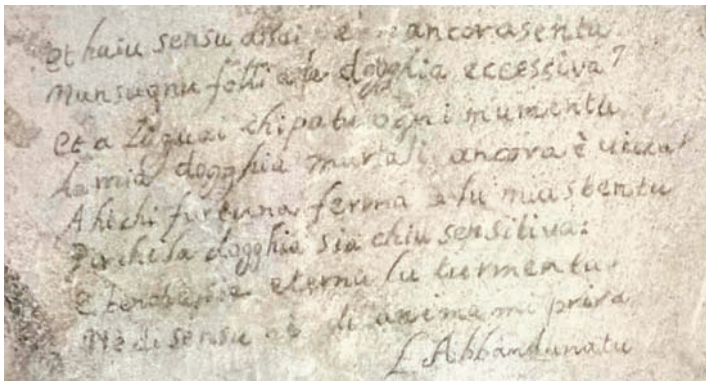 et haiu sensu assai è ancora sentu
Nun sugnu fotti a la dogghia eccessiva
Et a li guai chi patu ogni mumentu
La mia dogghia murtali ancora è viva
Ahi chi furtuna ferma a lu mia stentu
Pirchi la dogghia sia chiu sensitiva:
E eternu lu turmentu
Ne di sensu di anima mi priva
L'Abbandunatu